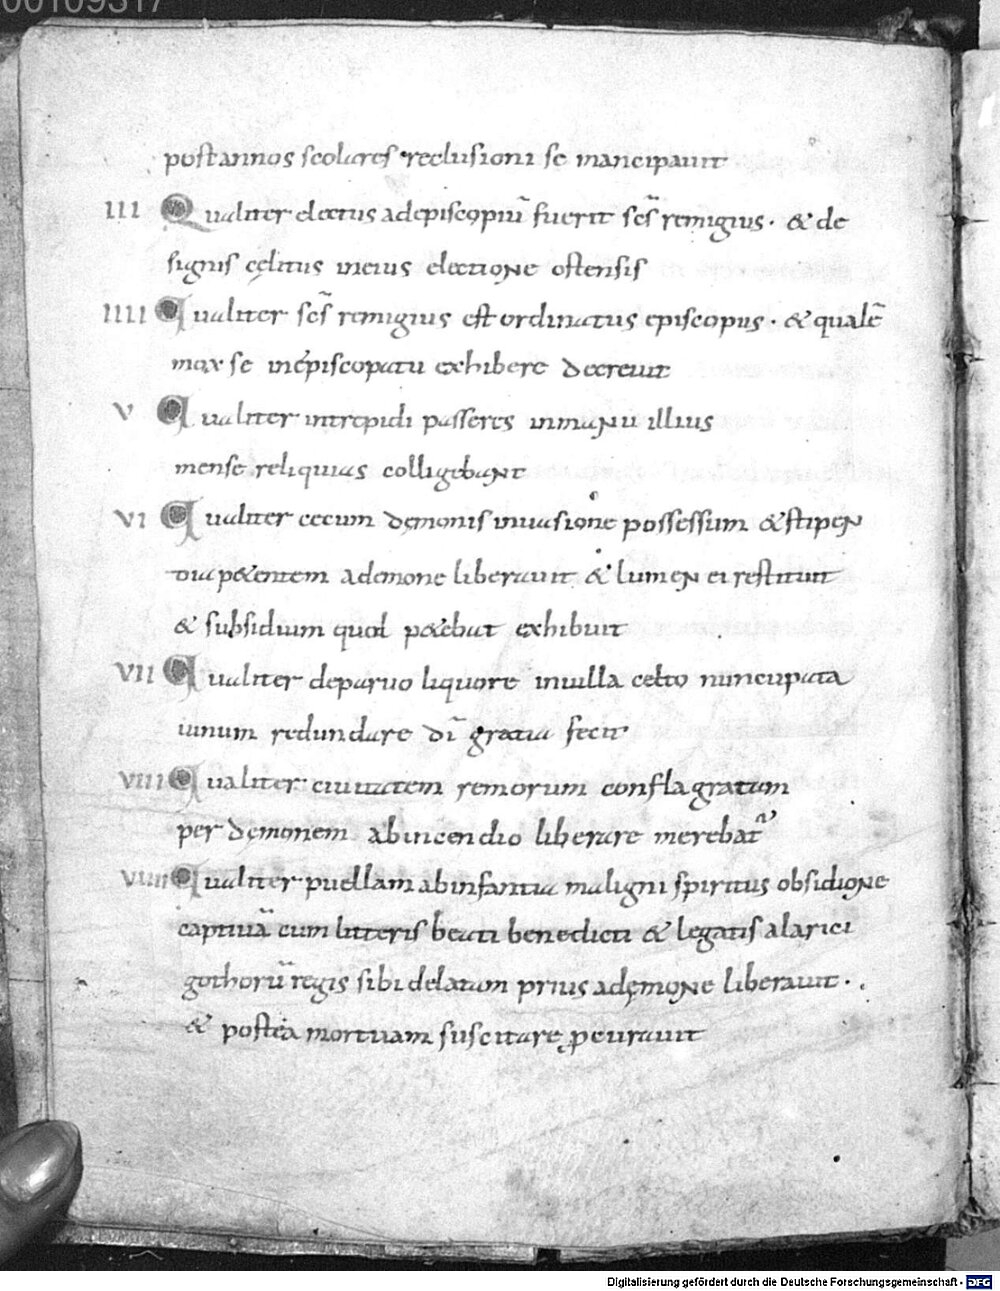 00109317
post annos scolares reclusioni se mancipauit
III Qualiter electus ad episcopiū fuerit scs̄ remigius · & de
signis cęlitus in eius electione ostensis
IIII Qualiter scs̄ remigius est ordinatus episcopus · & qualē
mox se in episcopatu exhibere decreuit
V Qualiter intrepidi passeres in manu illius
mense reliquias colligebant
VI Qualiter cecum dęmonis inuasione possessum & stipen
dia p&entem a demone liberauit & lumen ei restituit
& subsidium quod p&ebat exhibuit
VII Qualiter de paruo liquore in uilla celto nuncupata
uinum redundare dī gratia fecit
VIII Qualiter ciuitatem remorum conflagratam
per dęmonem ab incendio liberare merebat᷑
VIIII Qualiter puellam ab infantia maligni spiritus obsidione
captiuā cum litteris beati benedicti & legatis alarici
gothorū regis sibi delatam prius a dęmone liberauit ·
& postea mortuam suscitare ꝓcurauit
Digitalisierung gefördert durch die Deutsche Forschungsgemeinschaft - DFG